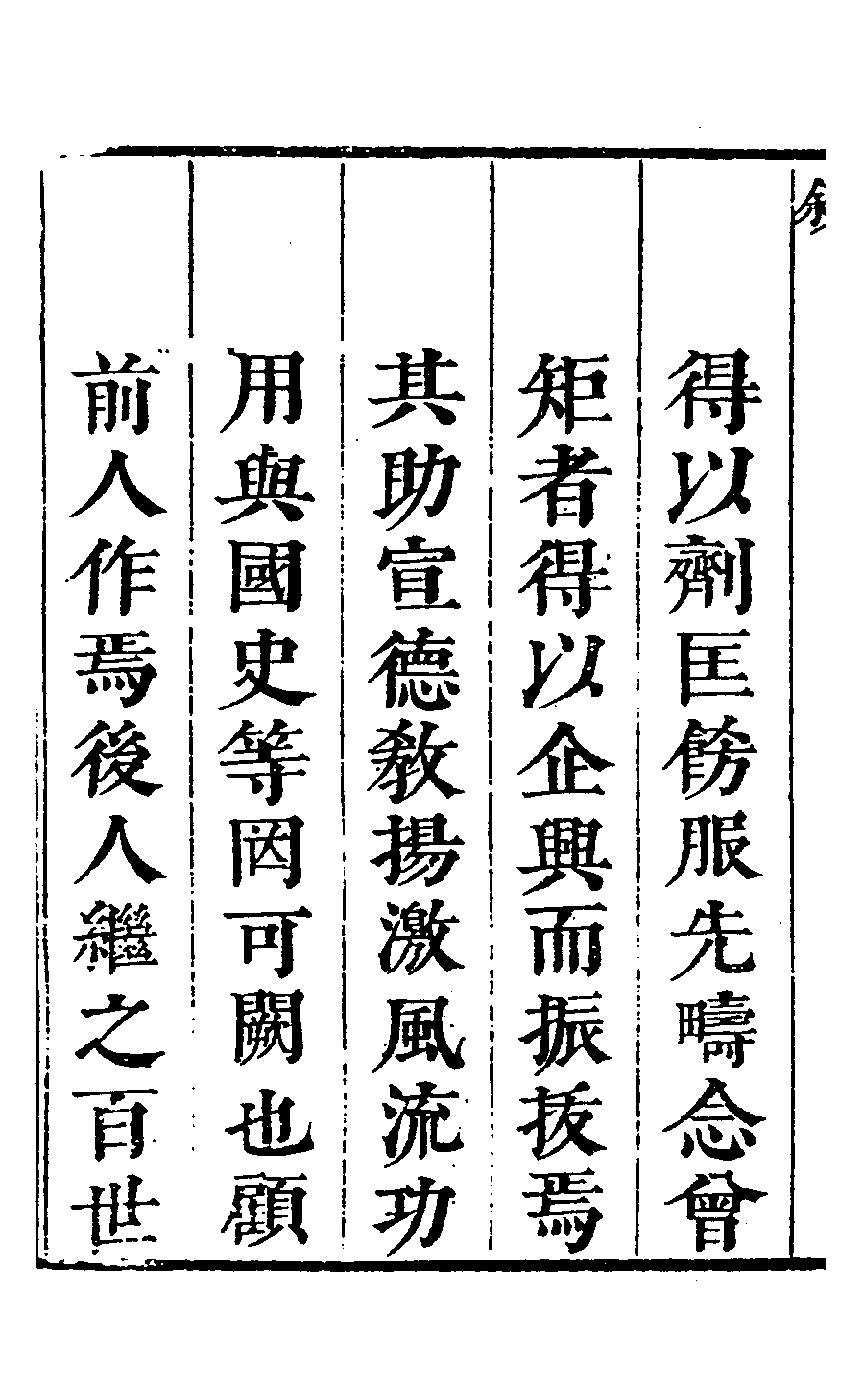 得以劑匡飭服先疇念曾
矩者得以企興而振拔焉
其助宣德敎揚激風流功
用與國史等罔可闕也顧
前人作焉後人繼之百世